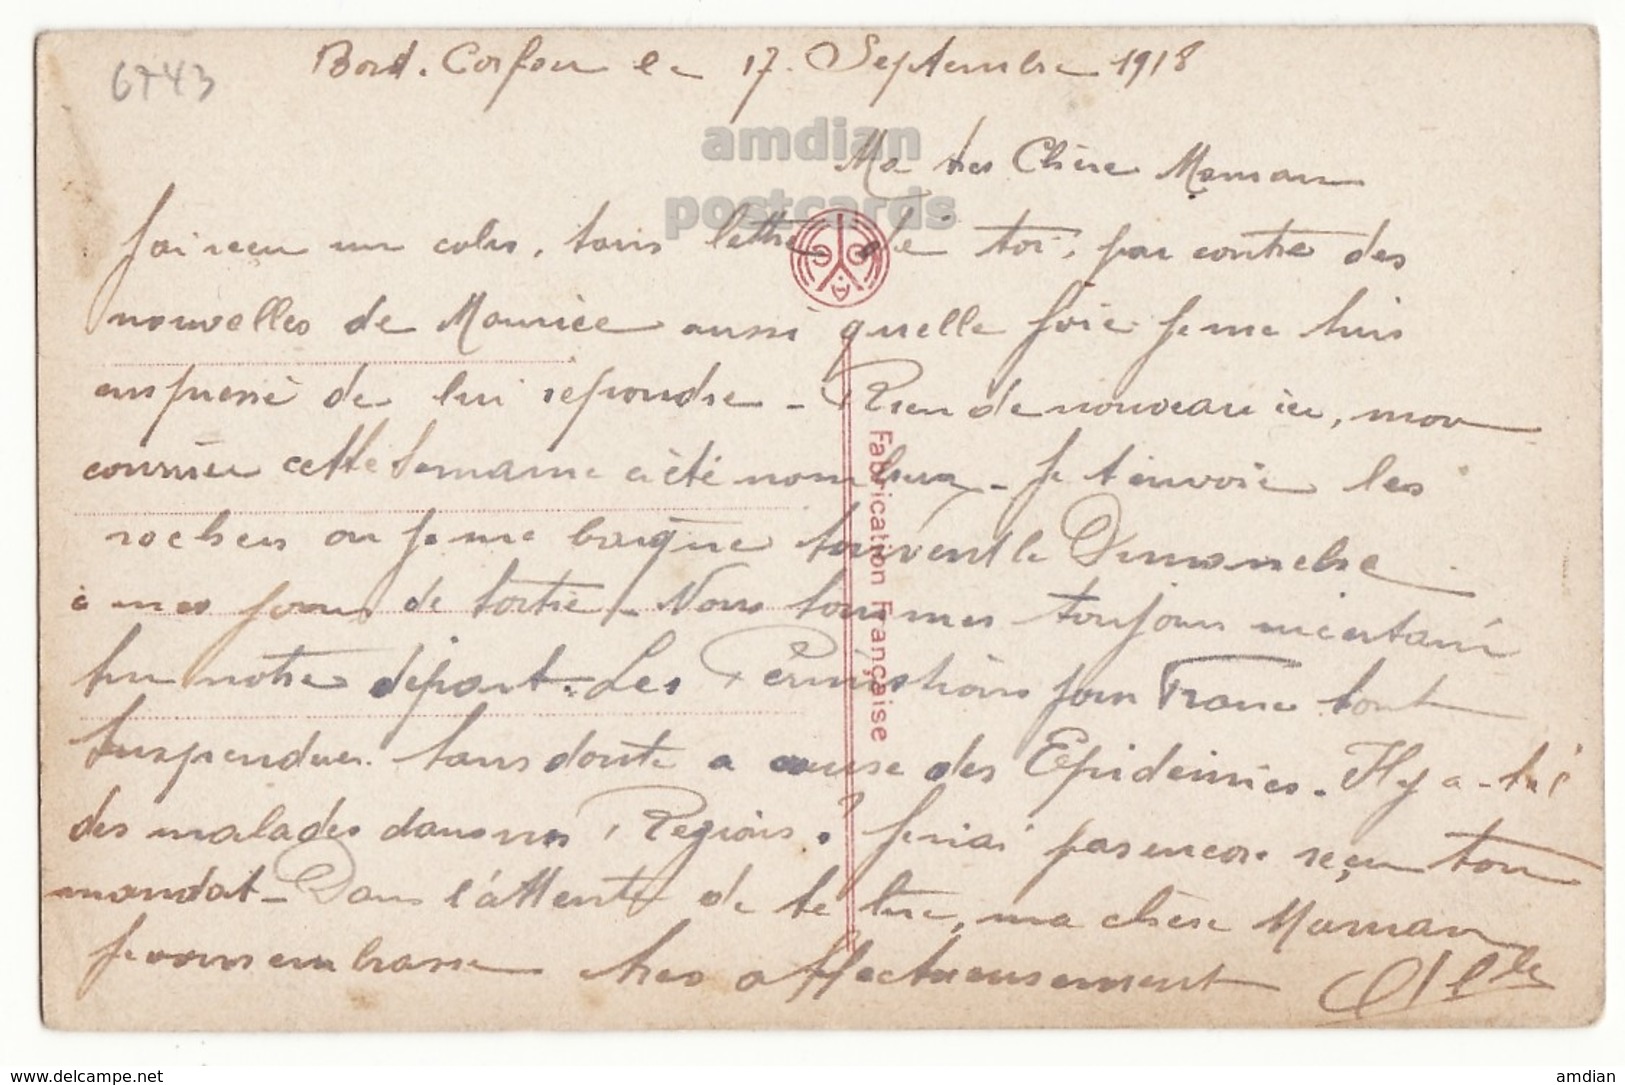 6743
Bord. Corfou le 17. Septembre 1918
amdian
postcards
Ma tres Chère Maman
J'ai reçu un colis, sans lettre de toi, par contre des
nouvelles de Maurice aussi quelle joie je me suis
empressé de lui répondre - Rien de nouveau ici, mon
courrier cette semaine a été nombreux - Je t'envoie les
rochers ou je me baigne souvent le Dimanche
à mes jours de sortie - Nous sommes toujours incertain
sur notre départ. Les Permissions pour France sont
suspendues sans doute a cause des Epidemies. Il y a-t-il
des malades dans nos Regions ? Je n'ai pas encore reçu ton
mandat - Dans l'attente de te lire, ma chère Maman
je vous embrasse tres affectueusement
Fabrication Française
www.delcampe.net
amdian